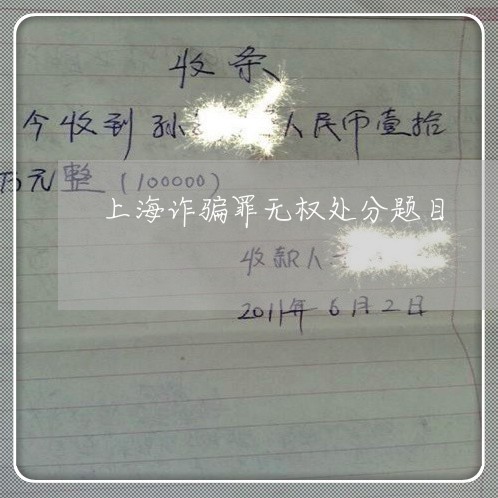 收条
今收到孙人民币壹拾
万元整（100000）
上海诈骗罪无权处分题目
收款人
2011年6月2日